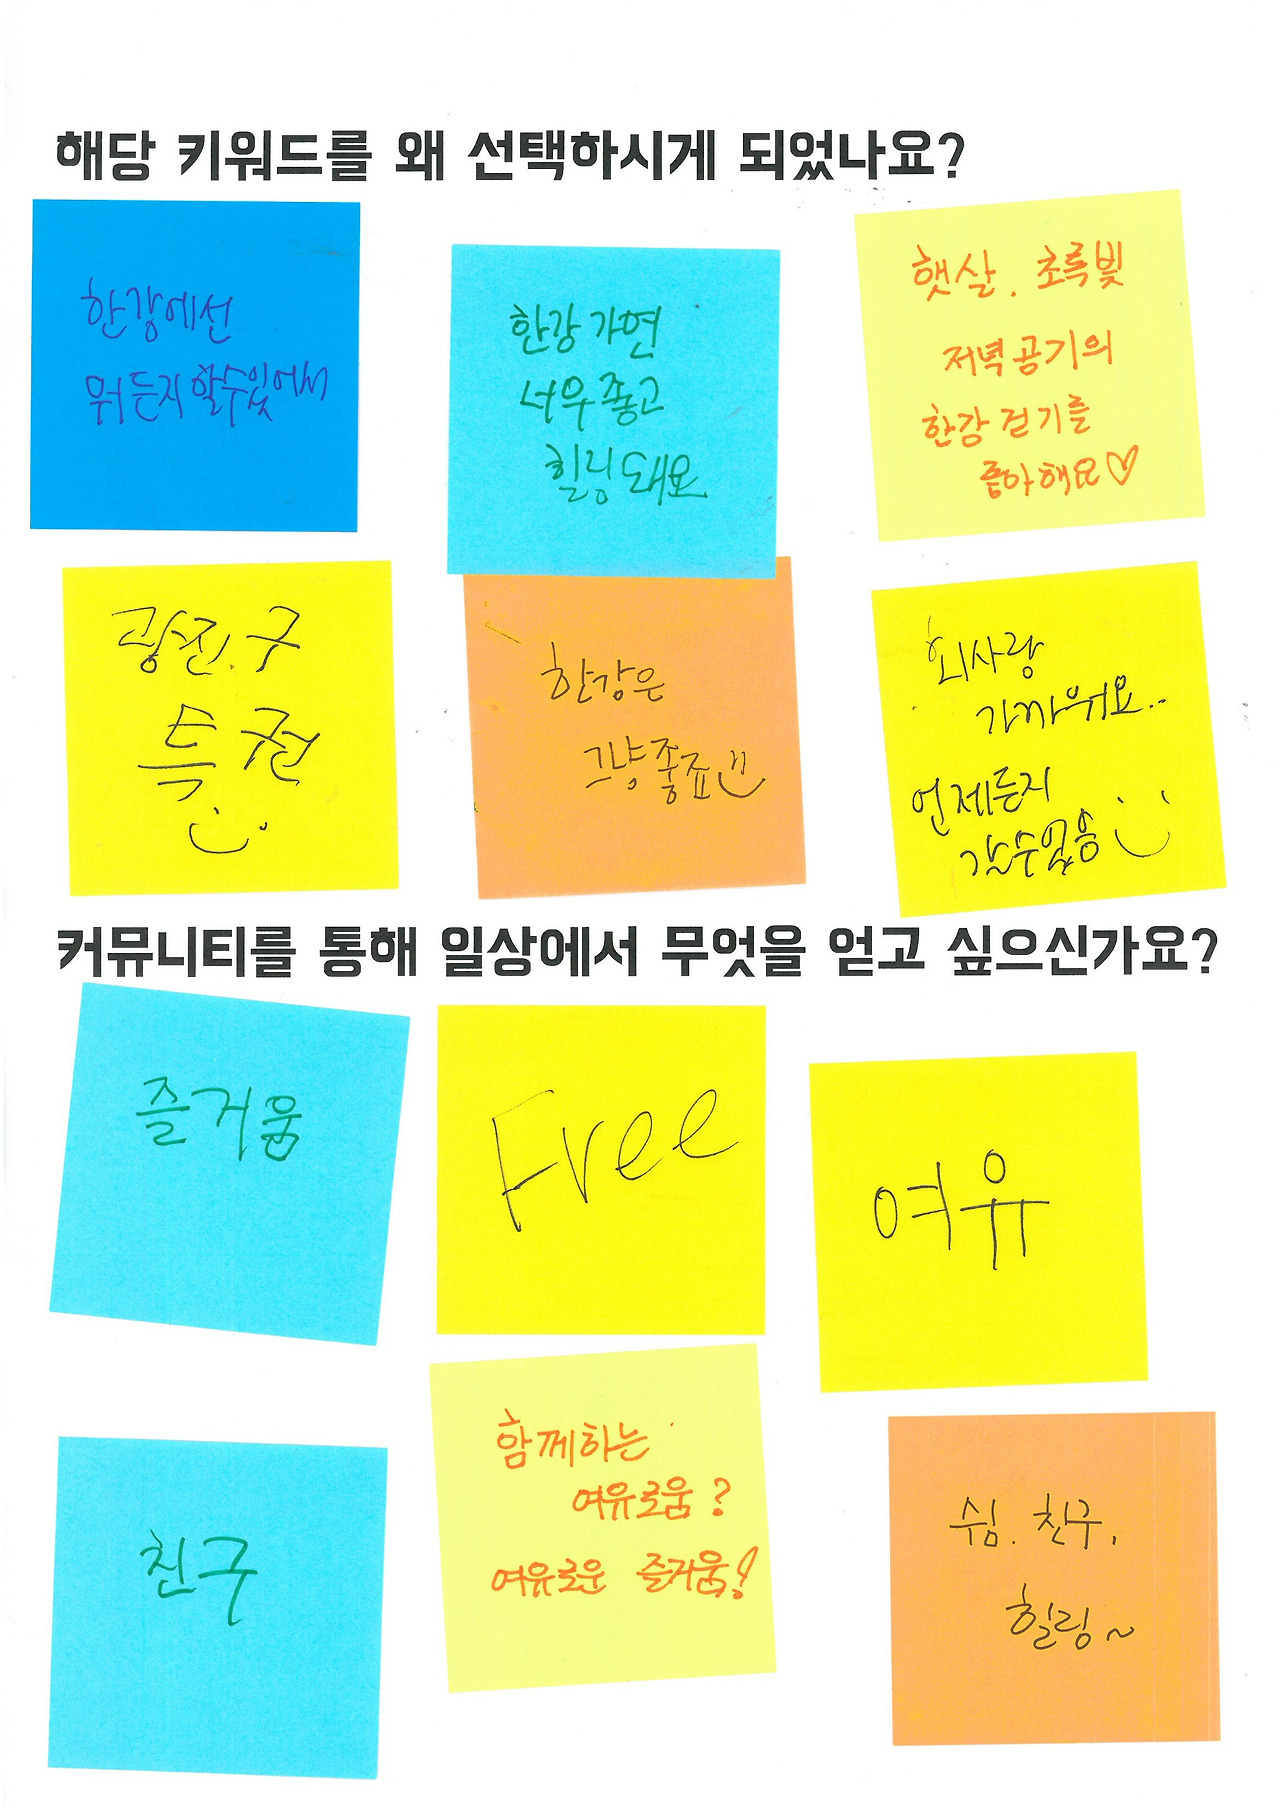 해당 키워드를 왜 선택하시게 되었나요?
한강에선
뭐든지 할수있어서
한강 가면
너우 좋고
힐링 돼요
햇살. 초록빛
저녁 공기의
한강 걷기를
좋아해요♡
광진.구
특.권
한강은
그냥 좋죠
회사랑
가까워요..
언제든지
갈수있음
커뮤니티를 통해 일상에서 무엇을 얻고 싶으신가요?
즐거움
Free
여유
친구
함께하는
여유로움?
여유로운 즐거움!
쉼. 친구,
힐링~